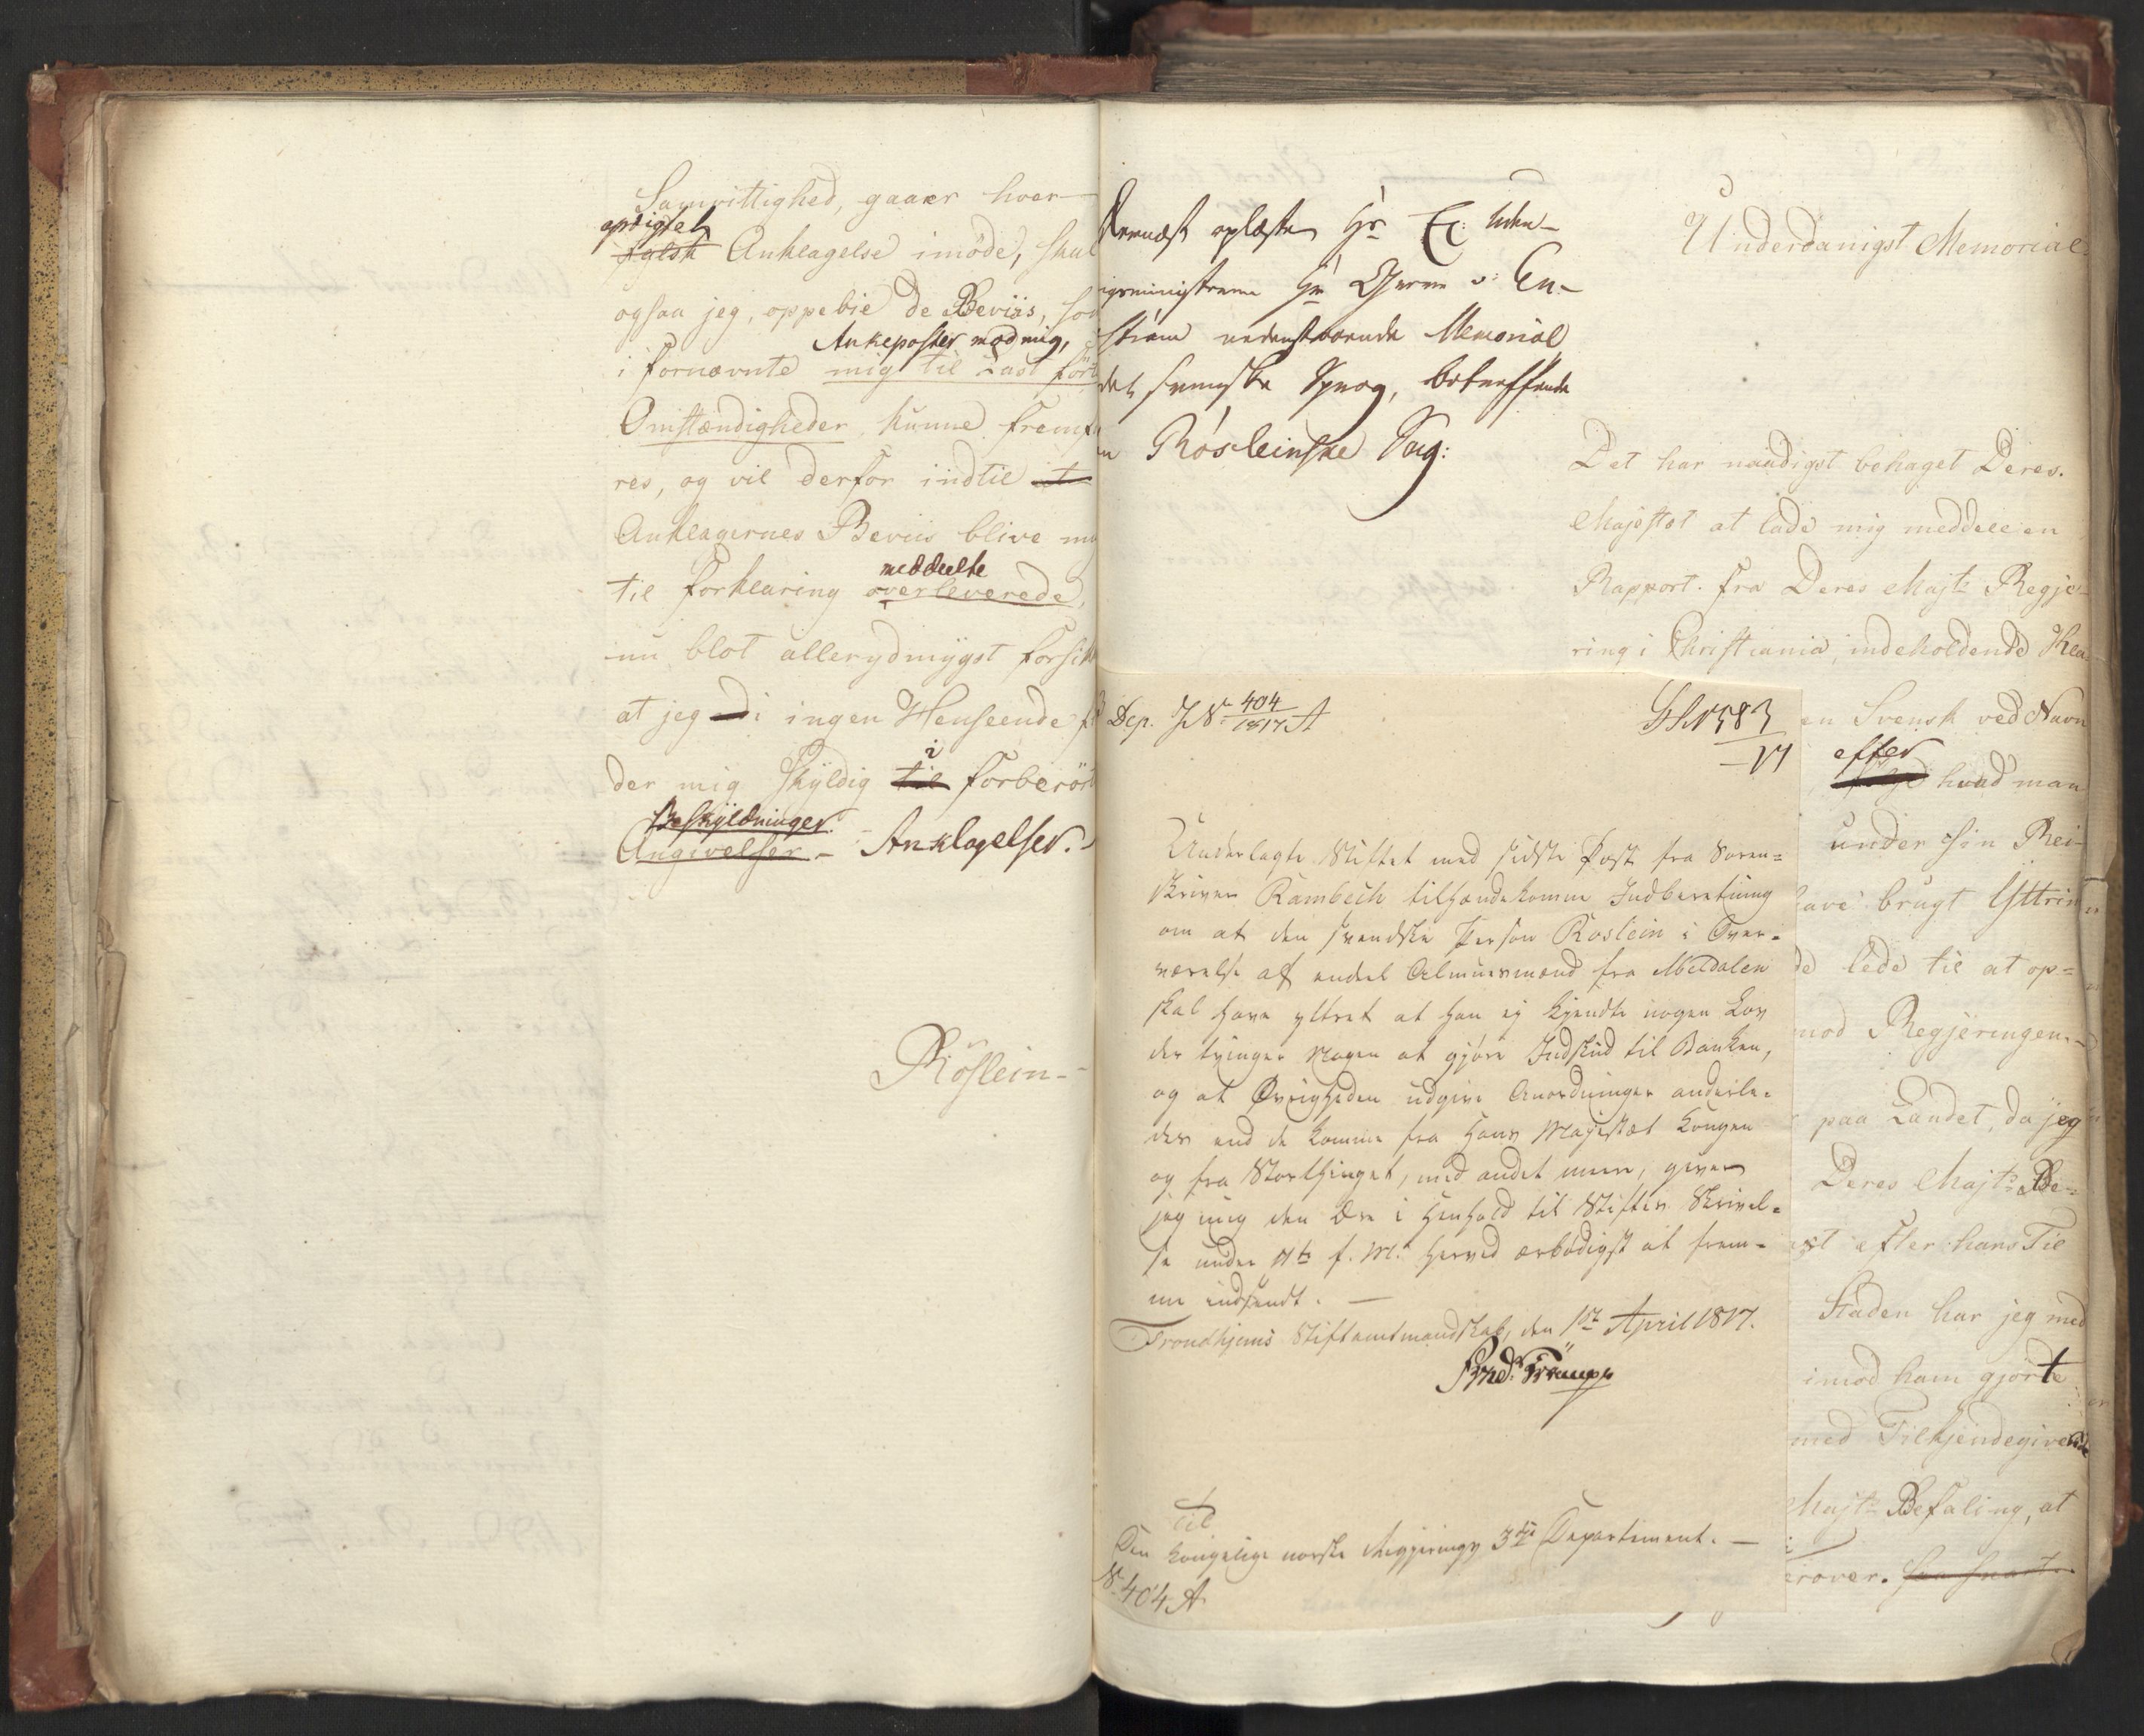 Samvittighed, gaaer hver
opdigtet
falsk Anklagelse imøde, skal
ogsaa jeg, oppebie de Beviis, som
Ankeposter mod mig,
i fornævnte mig til Last før
Omstændigheder kunne fremfø
res, og vil derfor indtil
Anklagernes Beviis blive mig
meddeelte
til forklaring overleverede,
nu blot allerydmygst forsik
at jeg i ingen Henseende fi
der mig skyldig til i forberør
Beskyldninger.
Angivelser. - Anklagelser.
Röslein
dernæst oplæste Hr Ex: Uden-
igsministeren Hr Greve v: En-
ström nedenstaaende Memorial
det svenske Sprog, betreffende
n Rösleinske Sag:
Underdanigst Memorial
Det har naadigst behaget Deres
Majestæt at lade mig meddele en
Rapport fra Deres Majts Regje-
ring i Christiania, indeholdende Kla-
en Svensk ved Navn
efter
følge hvad man
under sin Rei-
have brugt Yttrin
de lede til at op-
mod Regjeringen
paa Landet, da jeg
Deres Majts Be-
est efter hans Til
Staden har jeg med
imod ham gjorte
med Tilkjendegivende
Majts Befaling, at
erover. saa snart
Dep. J No 404/1817 A
583
17
Underlagte Stiftet med sidste Post fra Soren-
skriver Rambech tilhændekomne Indberetning
om at den svendske Person Roslein i Over-
værelse af endeel Almuesmænd fra Meldalen
skal have yttret at han ej kjendte nogen Lov
der tvinger Nogen at gjöre Indskud til Banken,
og at Øvrigheden udgive Anordninger anderle-
des end de komme fra Hans Majestæt Kongen
og fra Storthinget, med andet mere, giver
jeg mig den Ære i Henhold til Stiftets Skrivel-
se under 11te f. M. herved ærbödigst at frem-
me indsendt. —
Trondhjems Stiftamtmandskab, den 1ste April 1817.
Fred: Trampe
Til
Den kongelige norske Regjerings 3die Departement. —
No 404 A